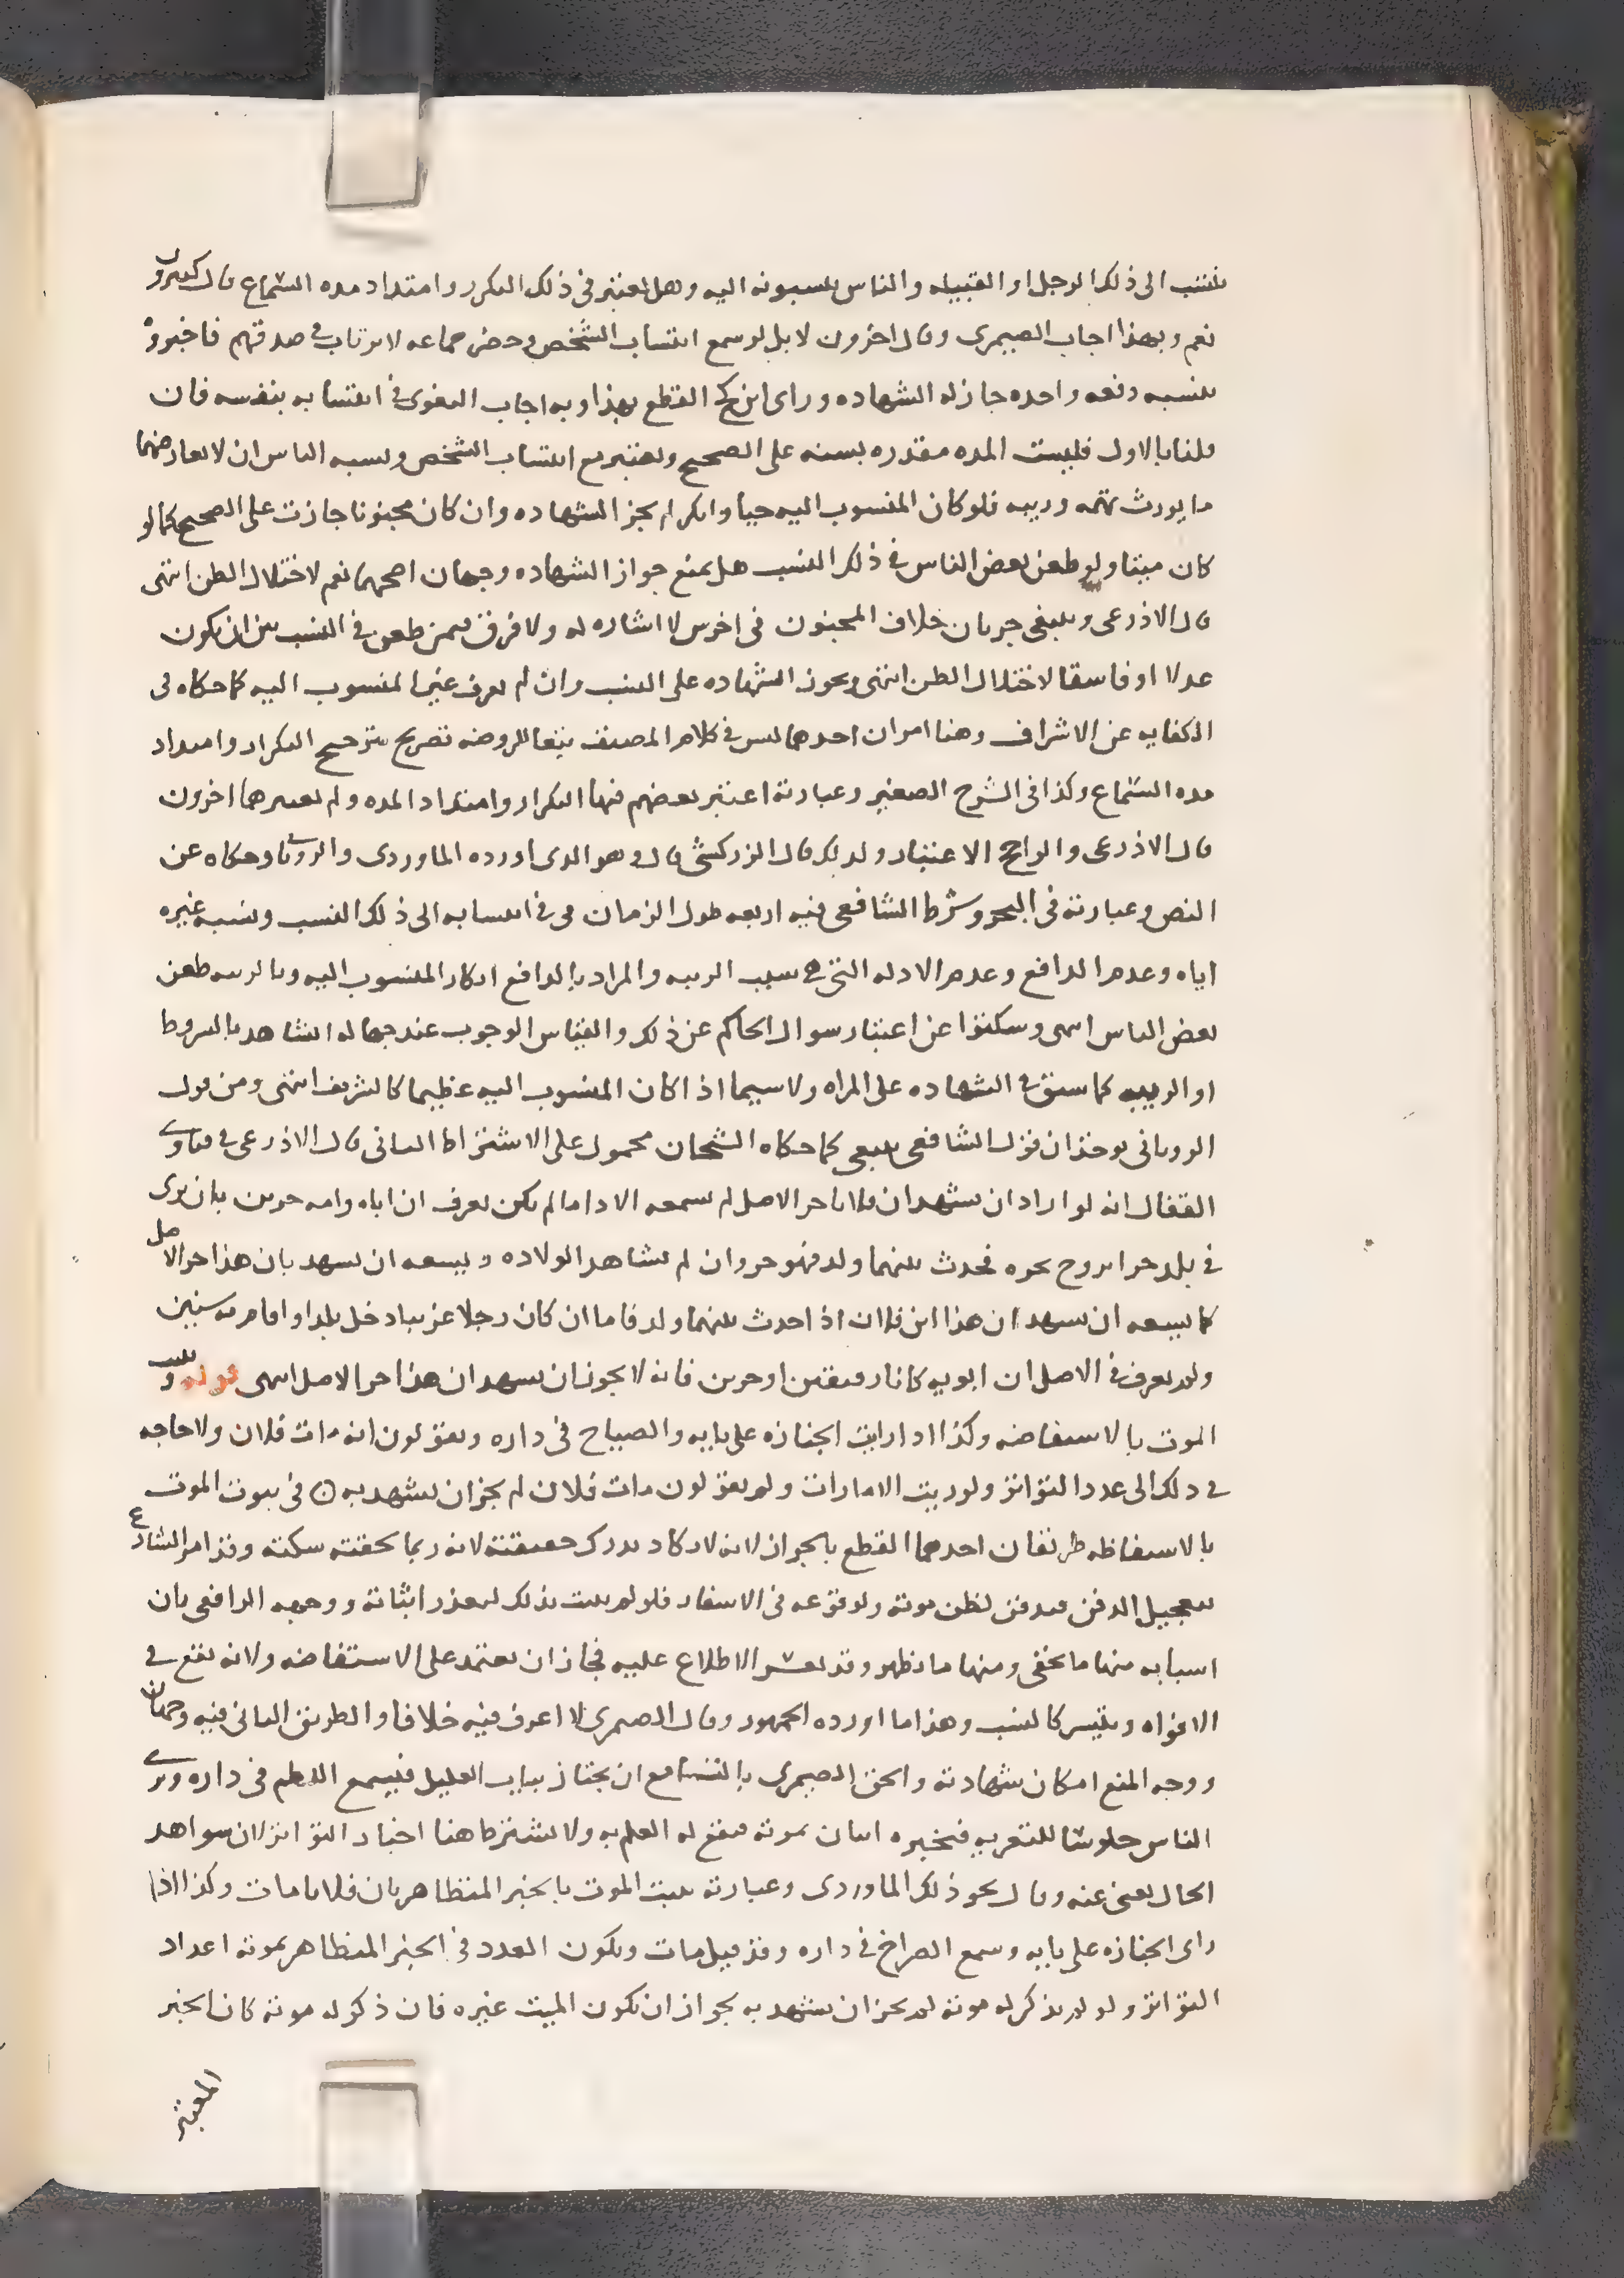 ينتسب الى ذلك الرجل او القبيله والناس ينسبونه اليه وهل يعتبر في ذلك التكرر وامتداد مده السماع قال كثيرون
نعم وبهذا اجاب الصيمري وقال اخرون لا بل لو سمع انتساب الشخص وحضر جماعه لا يرتاب في صدقهم فاخبروه
بنسبه دفعه واحده جاز له الشهاده وراى ابن كج القطع بهذا وبه اجاب البغوى في انتسابه بنفسه فان
قلنا بالاول فليست المده مقدره بسنه على الصحيح ويعتبر مع انتساب الشخص ونسبه الناس ان لا يعارضهما
ما يورث تهمه وريبه فلو كان المنسوب اليه حيا وانكر لم يجز الشهاده وان كان مجنونا جازت على الصحيح كما لو
كان ميتا ولو طعن بعض الناس في ذلك النسب هل يمنع جواز الشهاده وجهان اصحهما نعم لاختلال الظن انتهى
قال الاذرعى وينبغى جريان خلاف المجنون فى اخرس لا اشاره له ولا فرق فيمن طعن في النسب بين ان يكون
عدلا او فاسقا لاختلال الظن انتهى ويجوز الشهاده على النسب وان لم يعرف عين المنسوب اليه كما حكاه فى
الكفايه عن الاشراف وهنا امران احدهما ليس في كلام المصنف تبعا للروضه تصريح بترجيح التكرار وامتداد
مده السماع وكذا فى الشرح الصغير وعبارته اعتبر بعضهم فيها التكرار وامتداد المده ولم يعتبرهما اخرون
قال الاذرعى والراجح الاعتبار ولذلك قال الزركشى قال وهو الذى اورده الماوردى والرويانى وحكاه عن
النص وعبارته في البحر وشرط الشافعى فيه اربعه طول الزمان فى انتسابه الى ذلك النسب ونسبه غيره
اياه وعدم الدافع وعدم الادله التى هى سبب الريبه والمراد بالدافع انكار المنسوب اليه وبالريبه طعن
بعض الناس انتهى وسكتوا عن اعتبار سوال الحاكم عن ذلك والقياس الوجوب عند جهاله الشاهد بالشروط
او الريبه كما سبق في الشهاده على المراه ولا سيما اذا كان المنسوب اليه عظيما كالشريف انتهى ومن قول
الرويانى يوخذ ان قول الشافعى ينبغى كما حكاه الشيخان محمول على الاشتراط الثانى قال الاذرعى في فتاوى
القفال انه لو اراد ان يشهد ان فلانا حر الاصل لم يسعه الادا ما لم يكن يعرف ان اباه وامه حرين بان يرى
في بلد حرا يزوج بحره فحدث بينهما ولد فهو حر وان لم يشاهد الولاده ويسعه ان يشهد بان هذا حر الاصل
كما يسعه ان يشهد ان هذا ابن فلان اذا حدث بينهما ولد فاما ان كان رجلا غريبا دخل بلدا واقام به سنين
ولم يعرف في الاصل ان ابويه كانا رقيقين او حرين فانه لا يجوز ان يشهد ان هذا حر الاصل انتهى قوله ويثبت
الموت بالاستفاضه وكذا اذا رايت الجنازه على بابه والصياح في داره ويقولون انه مات فلان ولا حاجه
في ذلك الى عدد التواتر ولو ريت الامارات ولم يقولون مات فلان لم يجز ان يشهد به ۞ في ثبوت الموت
بالاستفاظه طريقان احدهما القطع بالجواز لانه لا يكاد يدرك حقيقته لانه ربما لحقته سكته وقد امر الشارع
بتعجيل الدفن فيدفن لظن موته ولوقوعه في الاسفار فلو لم يثبت بذلك لتعذر اثباته ووجهه الرافعى بان
اسبابه منها ما يخفى ومنها ما يظهر وقد يعسر الاطلاع عليه فجاز ان يعتمد على الاستفاضه ولانه يقع في
الافواه وينتشر كالنسب وهذا ما اورده الجمهور وقال الصيمرى لا اعرف فيه خلافا والطريق الثانى فيه وجهان
ووجه المنع امكان شهادته والحق الصيمرى بالتسامع ان يجتاز بباب العليل فيسمع اللطم في داره ويرى
الناس جلوسا للتعزيه فيخبره انسان بموته فيقع له العلم به ولا يشترط هنا اخبار التواتر لان شواهد
الحال يغنى عنه وقال نحو ذلك الماوردى وعبارته يثبت الموت بالخبر المتظاهر بان فلانا مات وكذا اذا
راى الجنازه على بابه وسمع الصراخ في داره وقد قيل مات ويكون العدد في الخبر المتظاهر بموته اعداد
التواتر ولو لم يذكر له موته لم يجز ان يشهد به لجواز ان يكون الميت غيره فان ذكر له موته كان الخبر
المعتبر